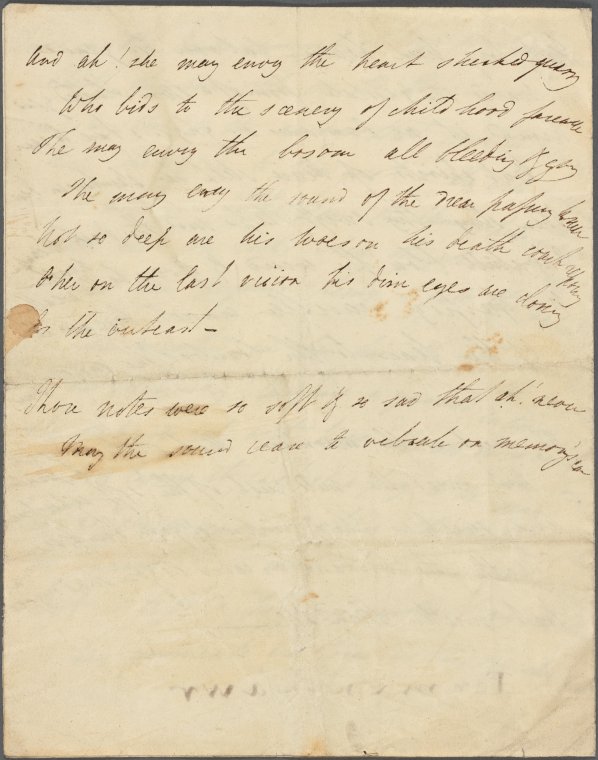 And ah! she may envy the heart shocked quarry
Who bids to the scenery of childhood farewell
She may envy the bosom all bleeding & gory
She may envy the sound of the drear passing knell
Not so deep are his woes on his death couch reposing
When on the last vision his dim eyes are closing
As the outcast –
Those notes were so soft & so sad that ah! never
May the sound cease to vibrate on memory's ear